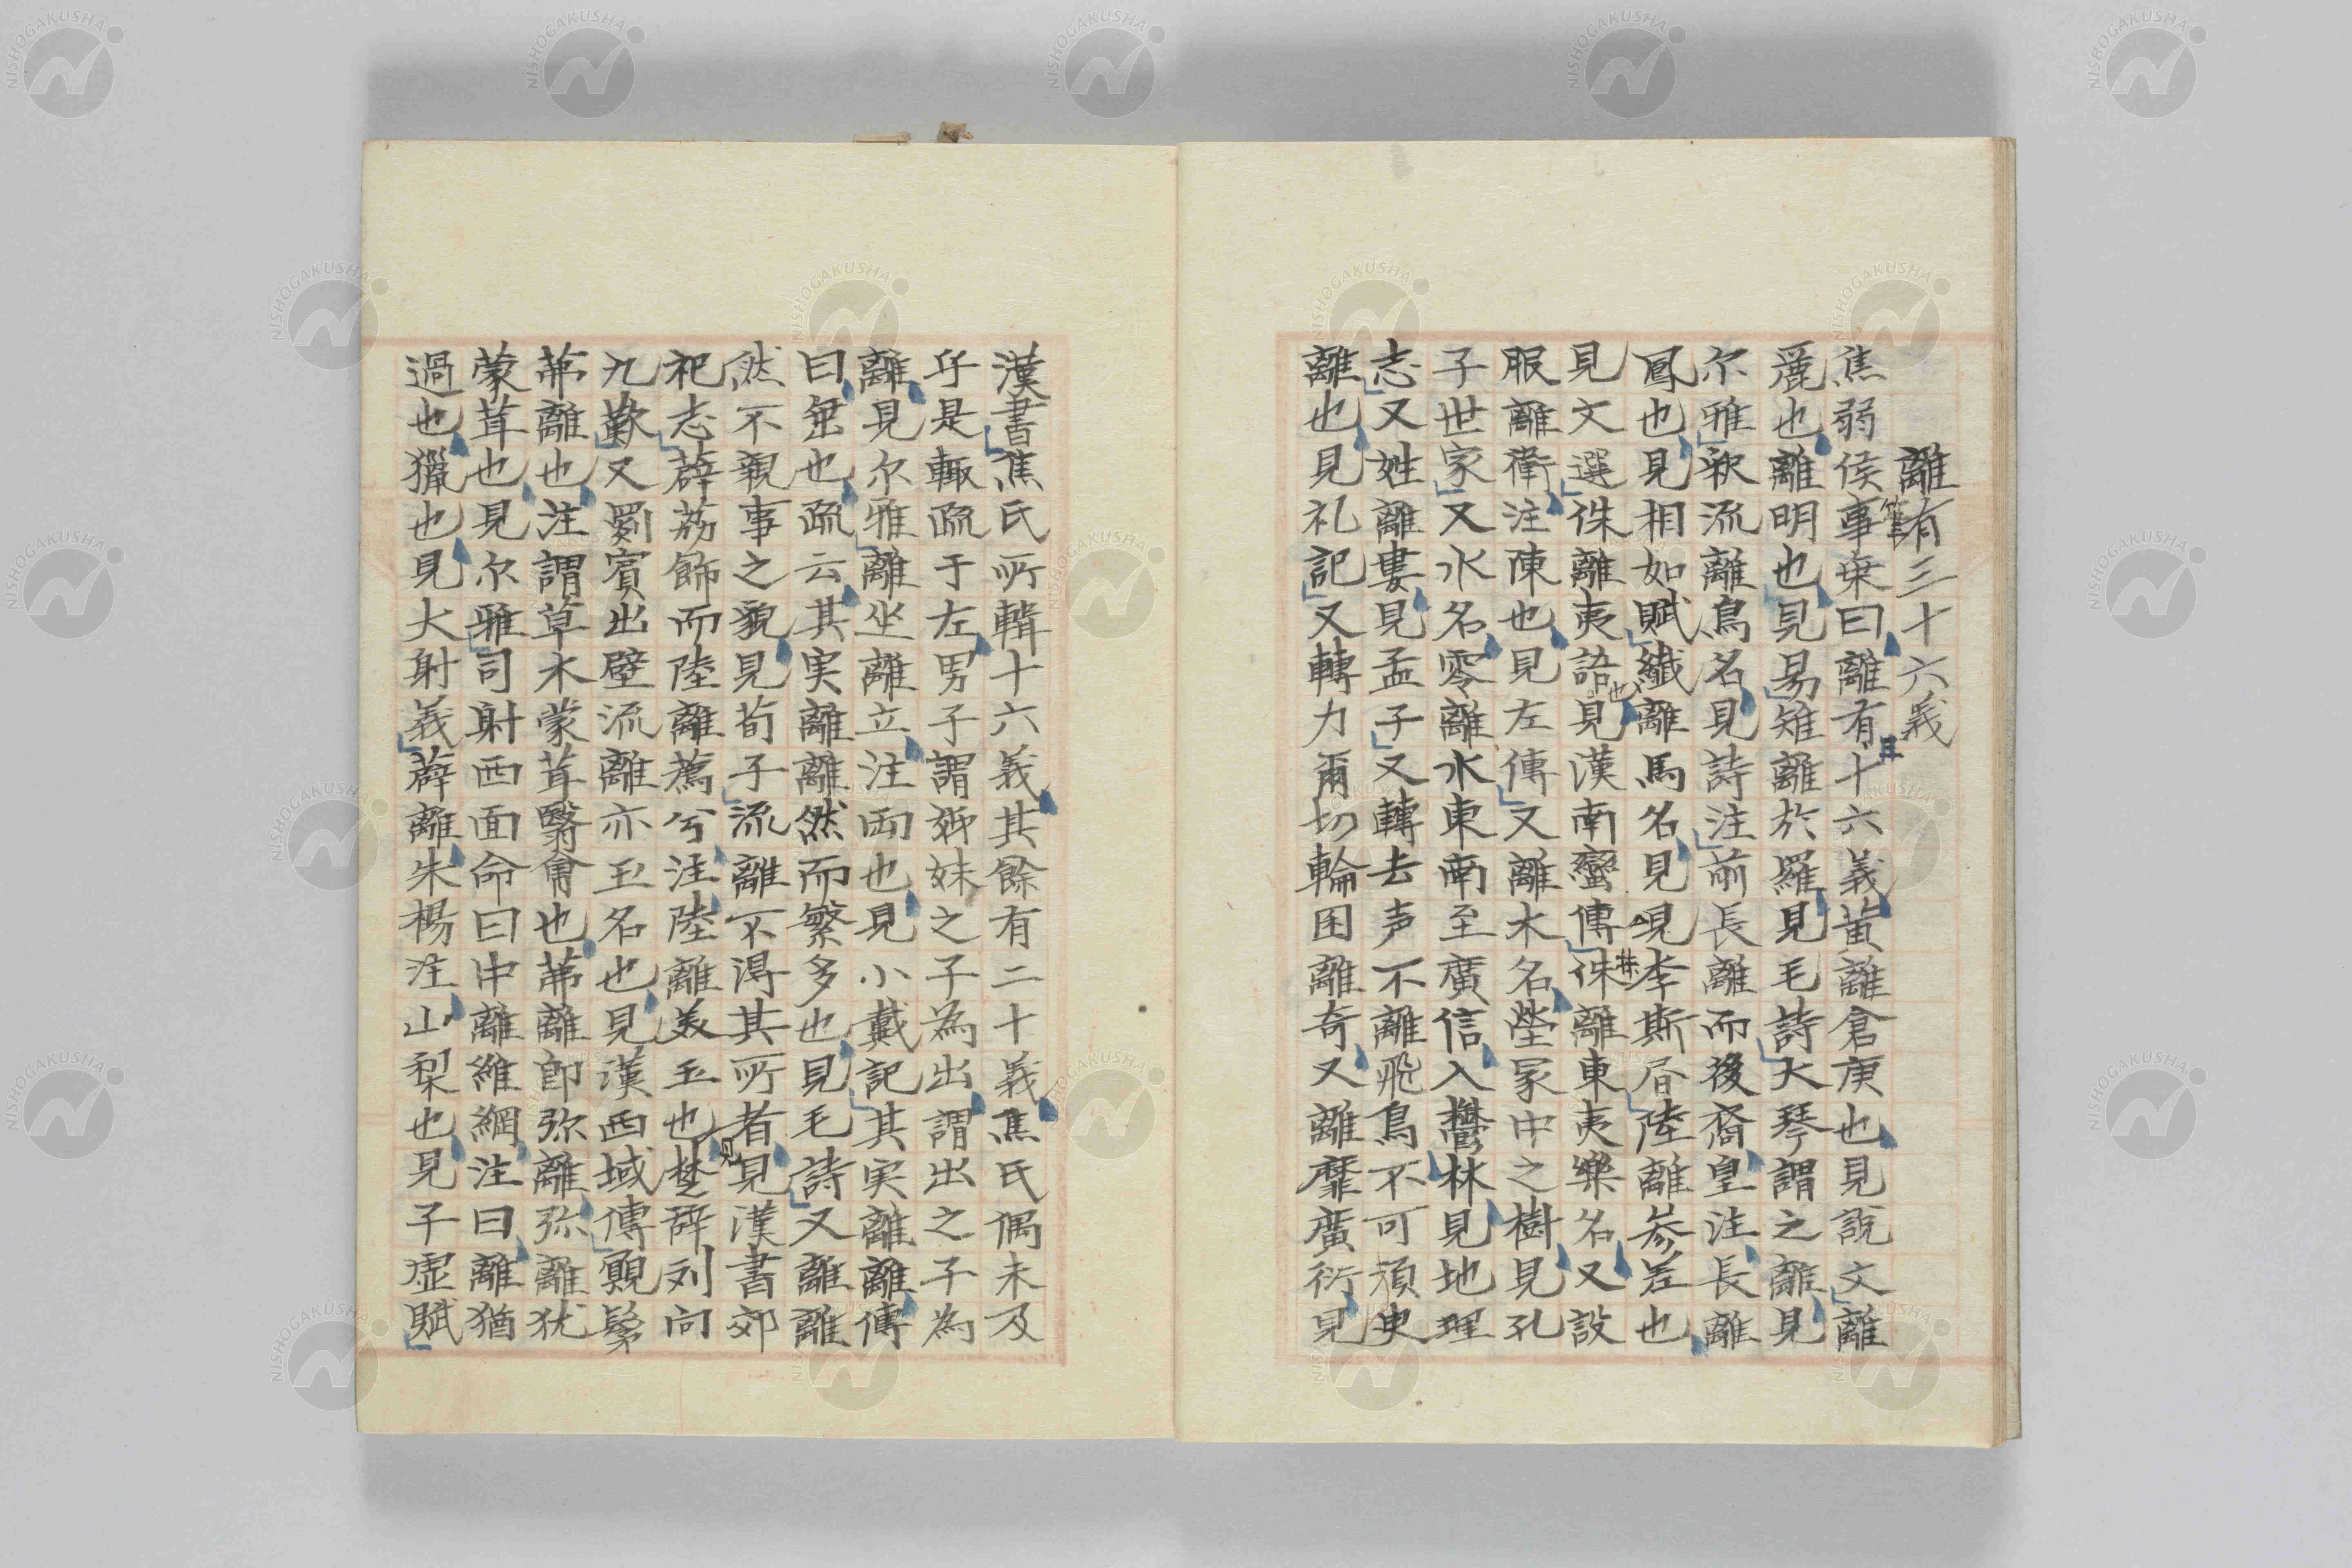 離有三十六義
焦弱侯筆乗曰離有十六義黄離倉庚也見說文離
麗也離明也見易雉離於羅見毛詩大琴謂之離見
尓雅釈流離鳥名見詩注前長離而後矞皇注長離
鳳也見相如賦纖離馬名見李斯傳陸離參差也
見文選侏離夷語也見漢南蠻傳侏離東夷樂名又設
服離衛注陳也見左傳又離木名塋冢中之樹見孔
子世家又水名零離水東南至廣信入鬱林見地理
志又姓離婁見孟子又轉去声不離飛鳥不可須臾
離也見礼記又轉力爾切輪囷離奇又離靡廣衍見
漢書焦氏所輯十六義其餘有二十義焦氏偶未及
乎是輙疏于左男子謂姊妹之子為出謂出之子為
離見尓雅離坐離立注両也見小戴記其実離離傳
曰垂也疏云其実離離然而繁多也見毛詩又離離
然不親事之貌見荀子流離不得其所者見漢書郊
祀志薜荔飾而陸離薦兮注陸離美玉也見楚辞刘向
九歎又罽賓出璧流離亦玉名也見漢西域傳覭髳
茀離也注謂草木蒙茸翳薈也茀離即弥離弥離犹
蒙茸也見尓雅司射西面命曰中離維綱注曰離猶
過也獵也見大射義薜離朱楊注山梨也見子虚賦